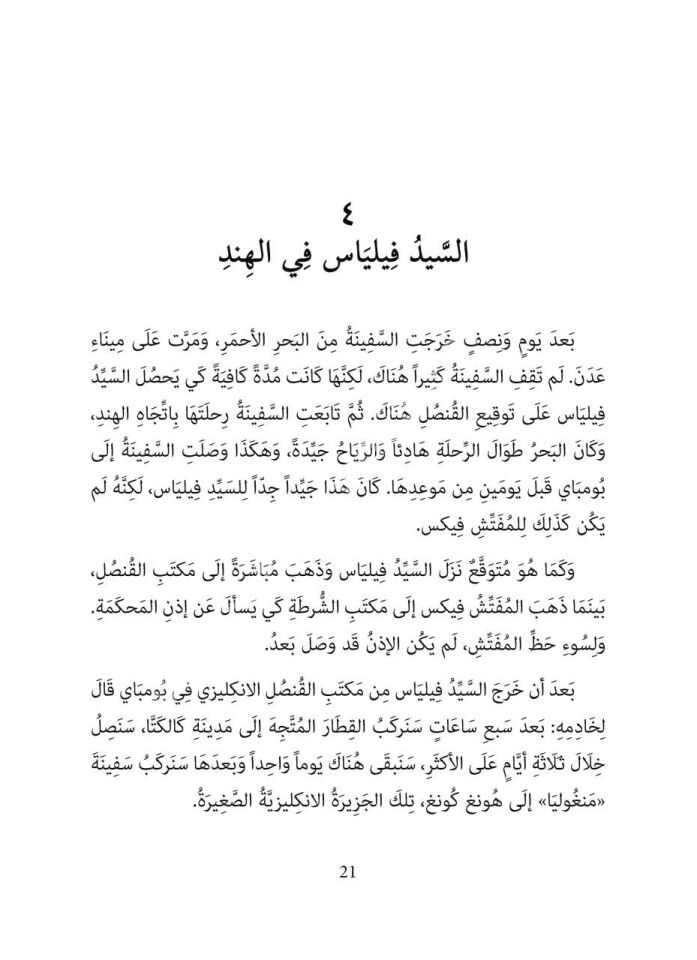 ٤
السَّيدُ فِيليَاس فِي الهِندِ
بَعدَ يَومٍ وَنِصفٍ خَرَجَتِ السَّفِينَةُ مِنَ البَحرِ الأحمَرِ، وَمَرَّت عَلَى مِينَاءِ
عَدَنَ. لَم تَقِفِ السَّفِينَةُ كَثِيراً هُنَاكَ، لَكِنَّهَا كَانَت مُدَّةً كَافِيَةً كَي يَحصُلَ السَّيِّدُ
فِيليَاس عَلَى تَوقِيعِ القُنصُلِ هُنَاكَ. ثُمَّ تَابَعَتِ السَّفِينَةُ رِحلَتَهَا بِاتِّجَاهِ الهِندِ،
وَكَانَ البَحرُ طَوَالَ الرِّحلَةِ هَادِئاً وَالرِّيَاحُ جَيِّدَةً، وَهَكَذَا وَصَلَتِ السَّفِينَةُ إلَى
بُومبَاي قَبلَ يَومَينِ مِن مَوعِدِهَا. كَانَ هَذَا جَيِّداً جِدّاً لِلسَيِّدِ فِيليَاس، لَكِنَّهُ لَم
يَكُن كَذَلِكَ لِلمُفَتِّشِ فِيكس.
وَكَمَا هُوَ مُتَوَقَّعٌ نَزَلَ السَّيِّدُ فِيليَاس وَذَهَبَ مُبَاشَرَةً إلَى مَكتَبِ القُنصُلِ،
بَينَمَا ذَهَبَ المُفَتِّشُ فِيكس إلَى مَكتَبِ الشُّرطَةِ كَي يَسألَ عَن إذنِ المَحكَمَةِ.
وَلِسُوءِ حَظِّ المُفَتِّشِ، لَم يَكُن الإذنُ قَد وَصَلَ بَعدُ.
بَعدَ أن خَرَجَ السَّيِّدُ فِيليَاس مِن مَكتَبِ القُنصُلِ الانكِليزي فِي بُومبَاي قَالَ
لِخَادِمِهِ: بَعدَ سَبعِ سَاعَاتٍ سَنَركَبُ القِطَارَ المُتَّجِهَ إلَى مَدِينَةِ كَالكَتَّا، سَنَصِلُ
خِلَالَ ثَلَاثَةِ أيَّامٍ عَلَى الأكثَرِ، سَنَبقَى هُنَاكَ يَوماً وَاحِداً وَبَعدَهَا سَنَركَبُ سَفِينَةَ
«مَنغُوليَا» إلَى هُونغ كُونغ، تِلكَ الجَزِيرَةُ الانكِليزيَّةُ الصَّغِيرَةُ.
21